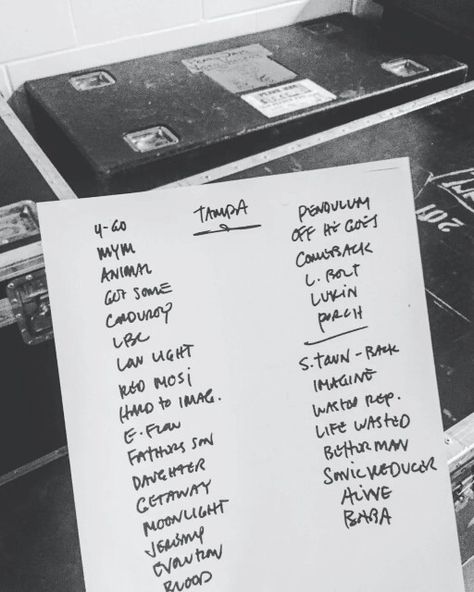 TAMPA
4-GO
MYM
ANIMAL
GOT SOME
CORDUROY
LBC
LOW LIGHT
RED MOSQ
HARD TO IMAG.
E. FLOW
FATHERS SON
DAUGHTER
GETAWAY
MOONLIGHT
JEREMY
EVOLUTION
BLOOD
PENDULUM
OFF HE GOES
COMEBACK
L. BOLT
LUKIN
PORCH
S. TOWN - BACK
IMAGINE
WASTED REP.
LIFE WASTED
BETTER MAN
SONIC REDUCER
ALIVE
BABA
201